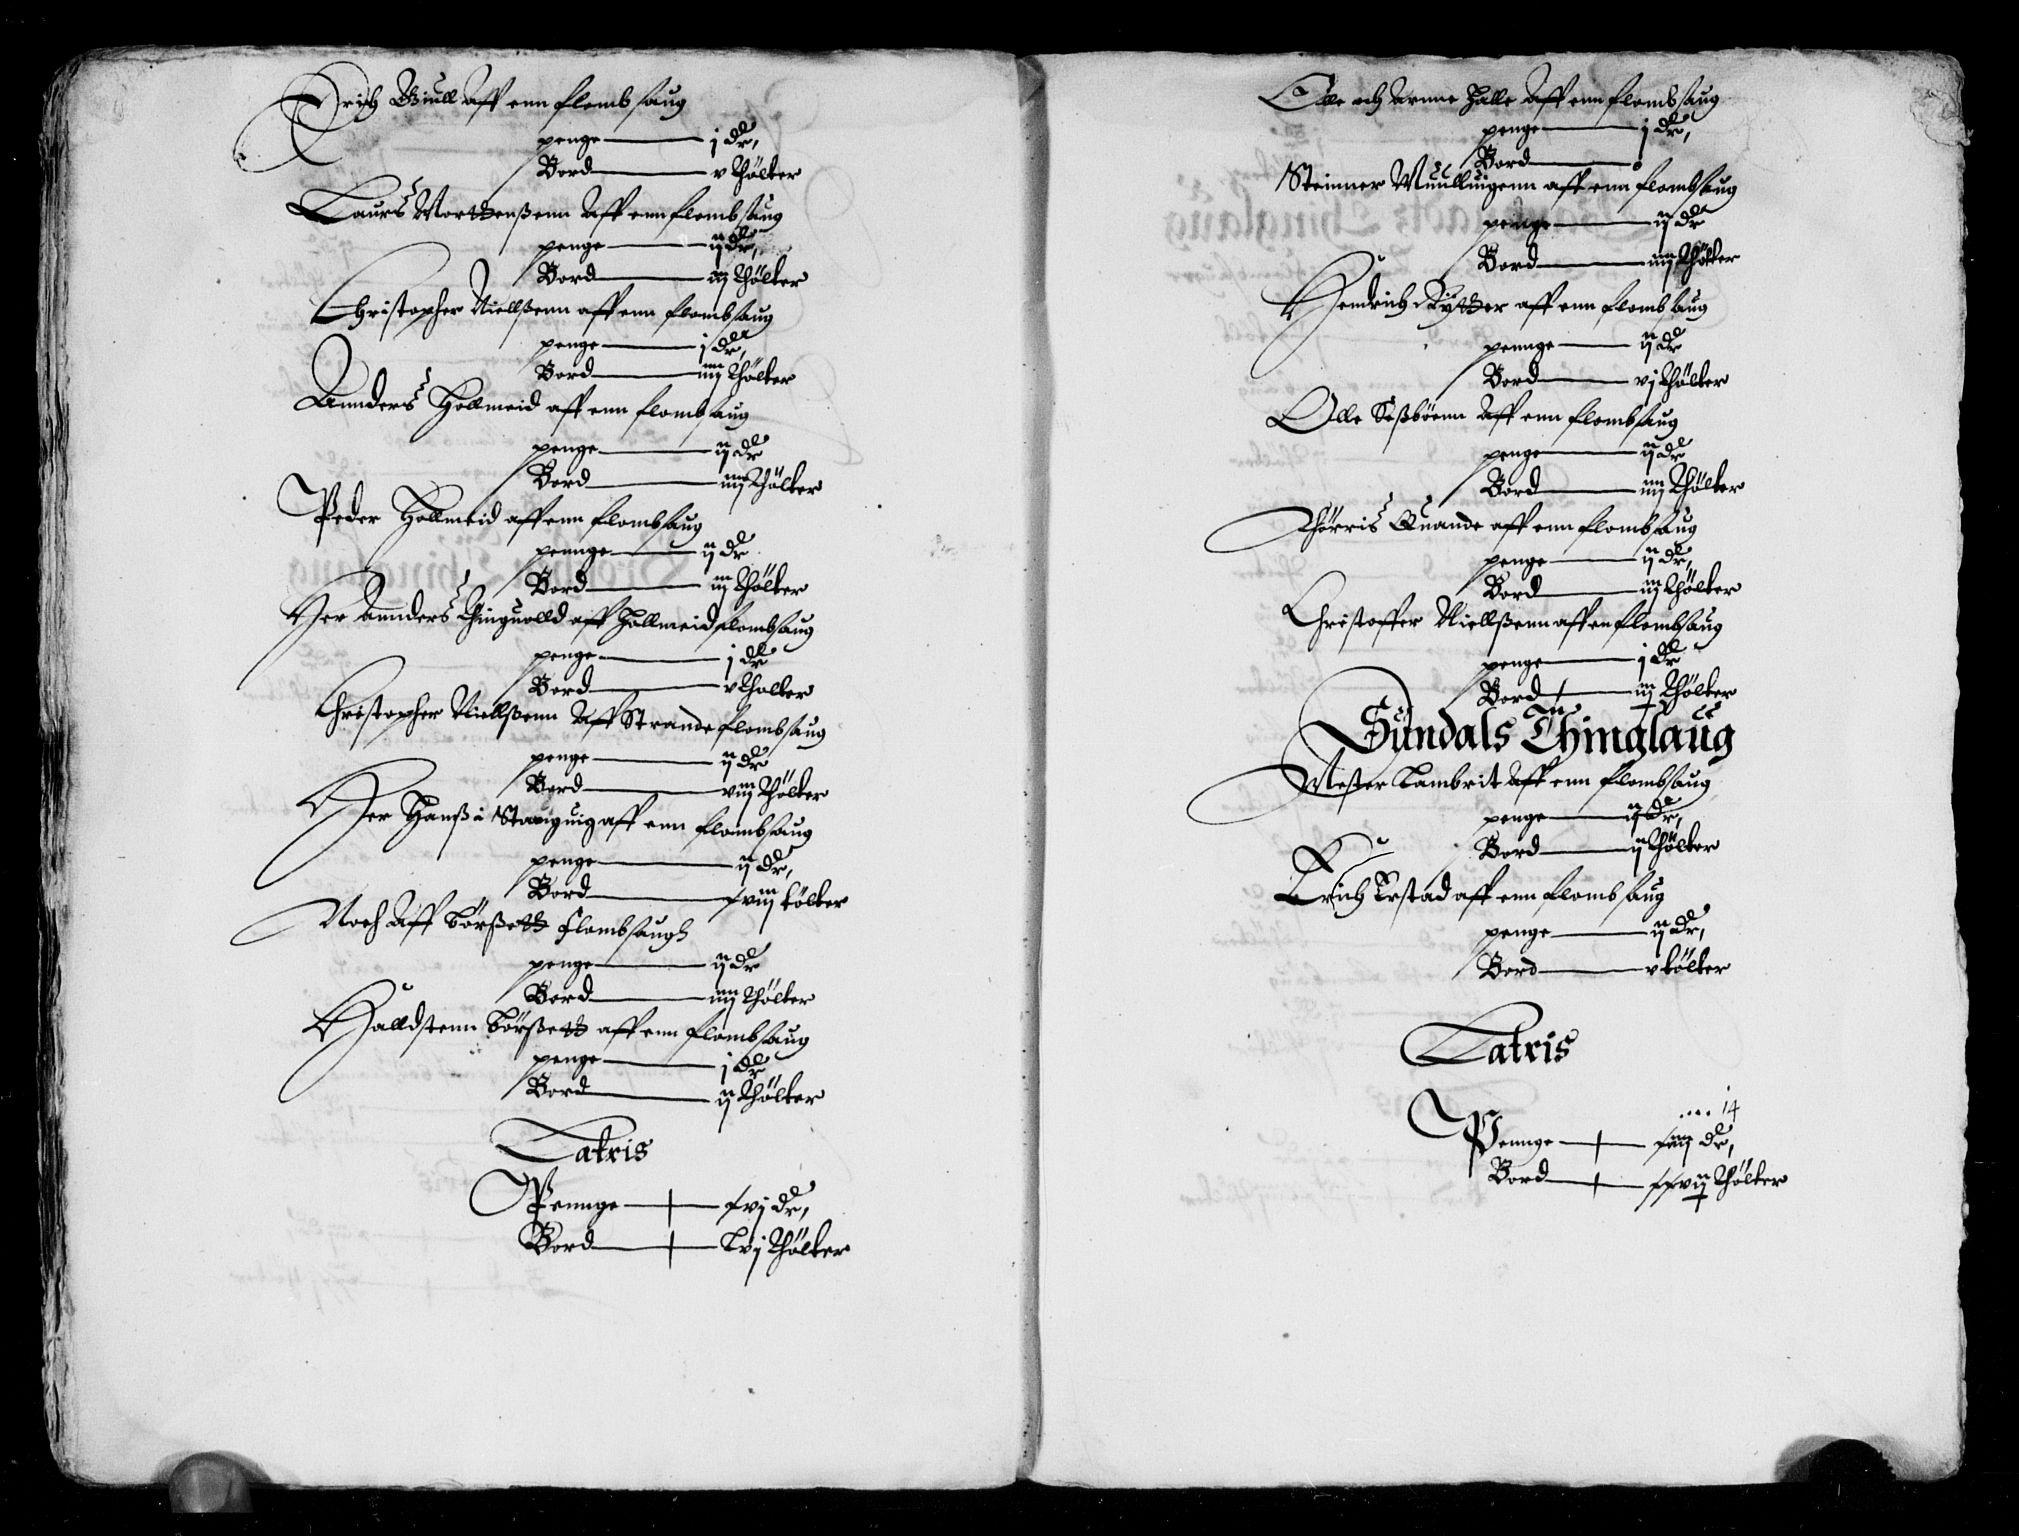 Erich Biull Aff enn flomb saug
penge — j dr,
Bord — v thölter
Laurs Morttenßenn Aff enn flomb saug
penge — ij dr,
Bord — iiij thölter
Christopher Niellßenn aff enn flombsaug
penge — j dr,
Bord — iiij thölter
Annders Hollmeid aff enn flombsaug
penge — ij dr
Bord — iiij thölter
Peder Hollmeid aff enn flombsaug
pennge — ij dr
Bord — iij thölter
Her Annders Thinguolld aff Hollmeid flombsaug
penge — j dr
Bord — v tholter
Christopher Niellßenn Aff Strande flombsaug
penge — ij dr
Bord — viij thölter
Her Hanß i Stanguig aff enn flombsaug
penge — ij dr,
Bord — xviij tölter
Noch Aff Börßett flombsaugh
penge — ij dr
Bord — iiij thölter
Halldstenn Börßett aff enn flombsaug
penge — j dr
Bord — ij thölter
Latris
Pennge — xvj dr,
Bord — Lvj thölter
Olle och Arnne Halle Aff enn flombsaug
penge — j dr,
Bord — 0
Steinner Muullingenn aff enn flombsaug
penge — ij dr
Bord — iiij thölter
Hendrich Rytter aff enn flomb saug
pennge — ij dr
Bord — vj thölter
Olle Seßböenn Aff enn flombsaug
penge — ij dr
Bord — iiij thölter
Thörris Quande aff enn flombsaug
penge — ij dr,
Bord — iij thölter
Christoffer Niellßenn aff en flombsaug
penge — j dr
Bord — iij thölter
Sundals Thinglaug
Mester Lambrit Aff enn flombsaug
penge — ij dr,
Bord — ij thölter
Erich Erstad aff enn flomb saug
penge — ij dr,
Bord — v tölter
Latris
14
Pennge — xiiij dr,
Bord — xxvij thölter